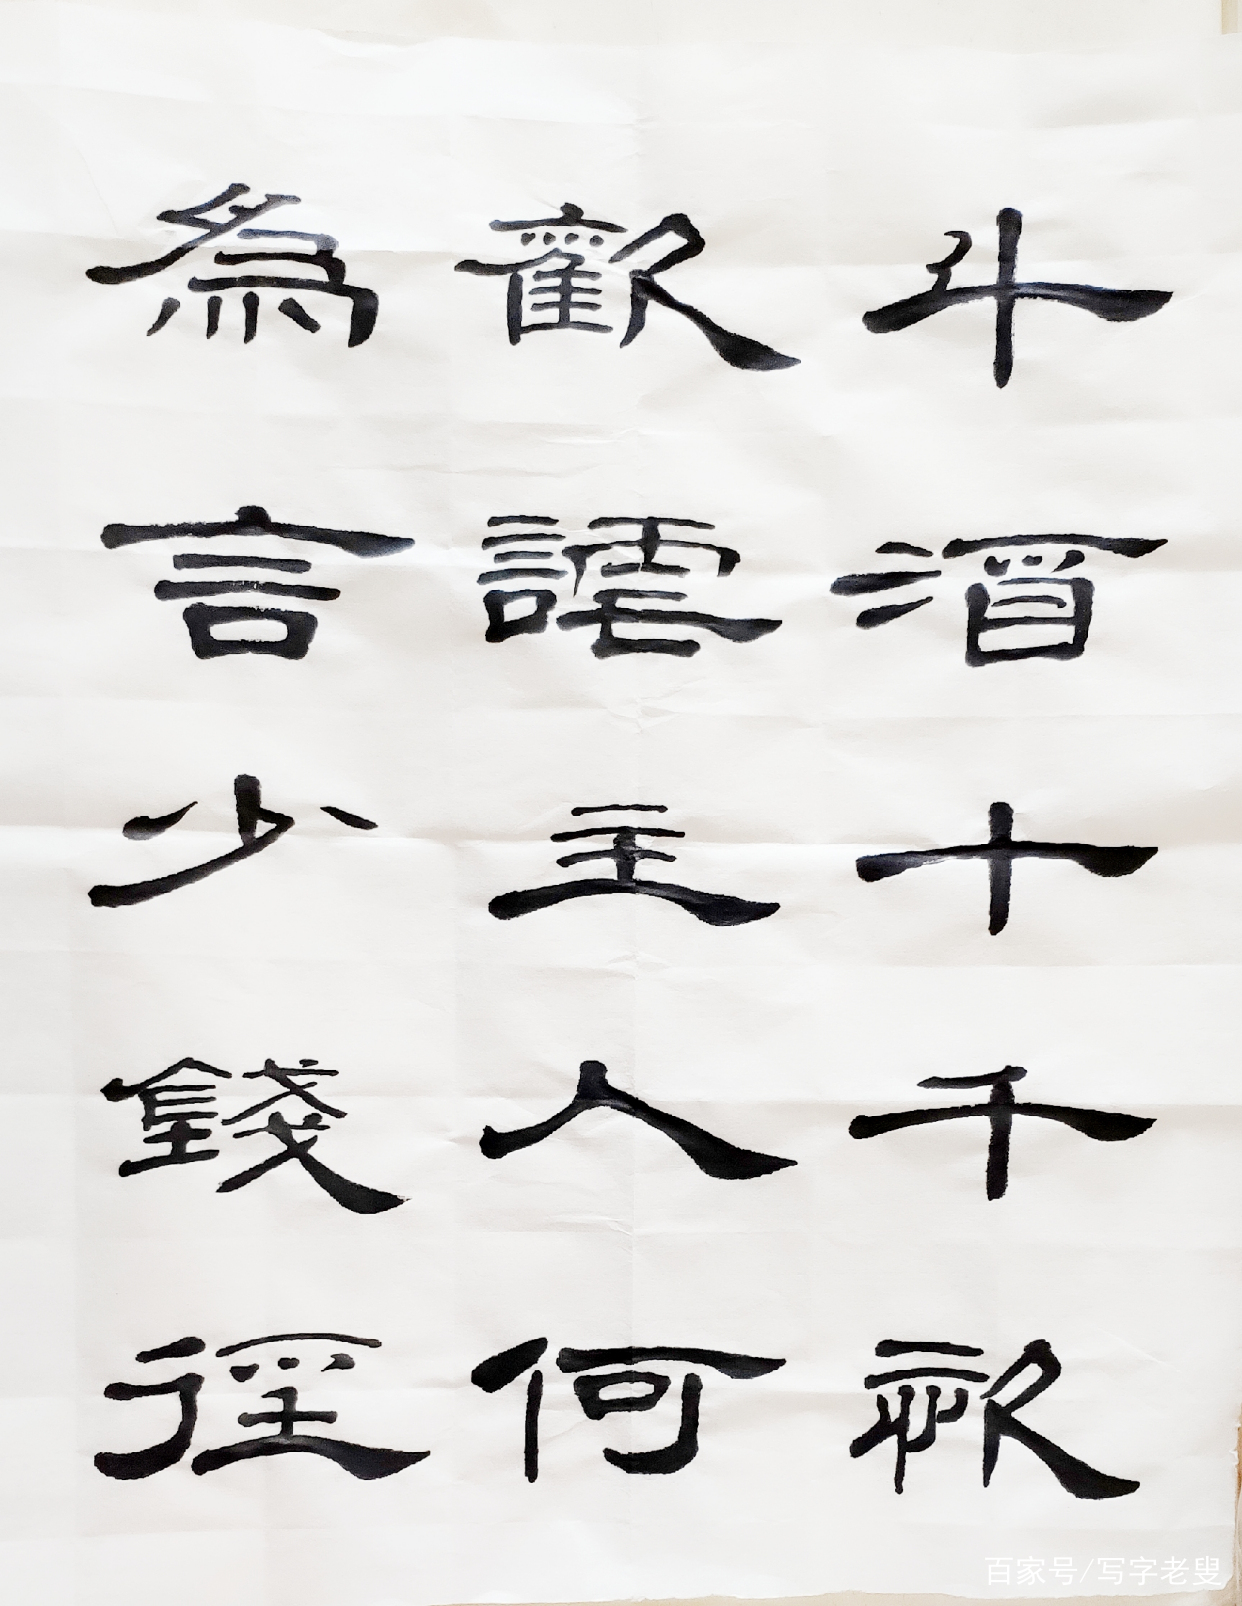 斗酒十千恣
歡謔主人何
為言少錢徑
百家号/写字老叟